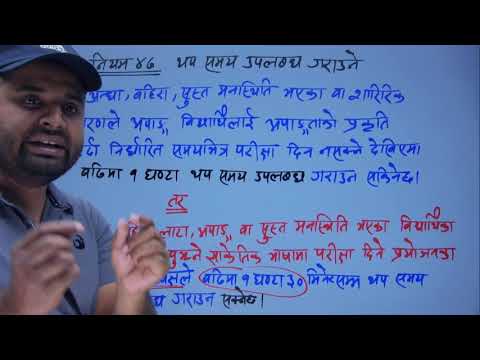 नियम ४७ थप समय उपलब्ध गराउने
अन्धा, बहिरा, सुस्त मनस्थिति भएका वा शारिरिक
अपाङ्ग विद्यार्थीलाई अपाङ्गताको प्रकृति
निर्धारित समयभित्र परीक्षा दिन नसक्ने देखिएमा
बढिमा १ घण्टा थप समय उपलब्ध गराउन सकिनेछ।
तर
लाटा, अपाङ्ग वा सुस्त मनस्थिति भएका विद्यार्थीका
सांकेतिक भाषामा परीक्षा दिने प्रयोजनका
बढिमा १ घण्टा ३० मिनेटसम्म थप समय
गराउन सक्नेछ।